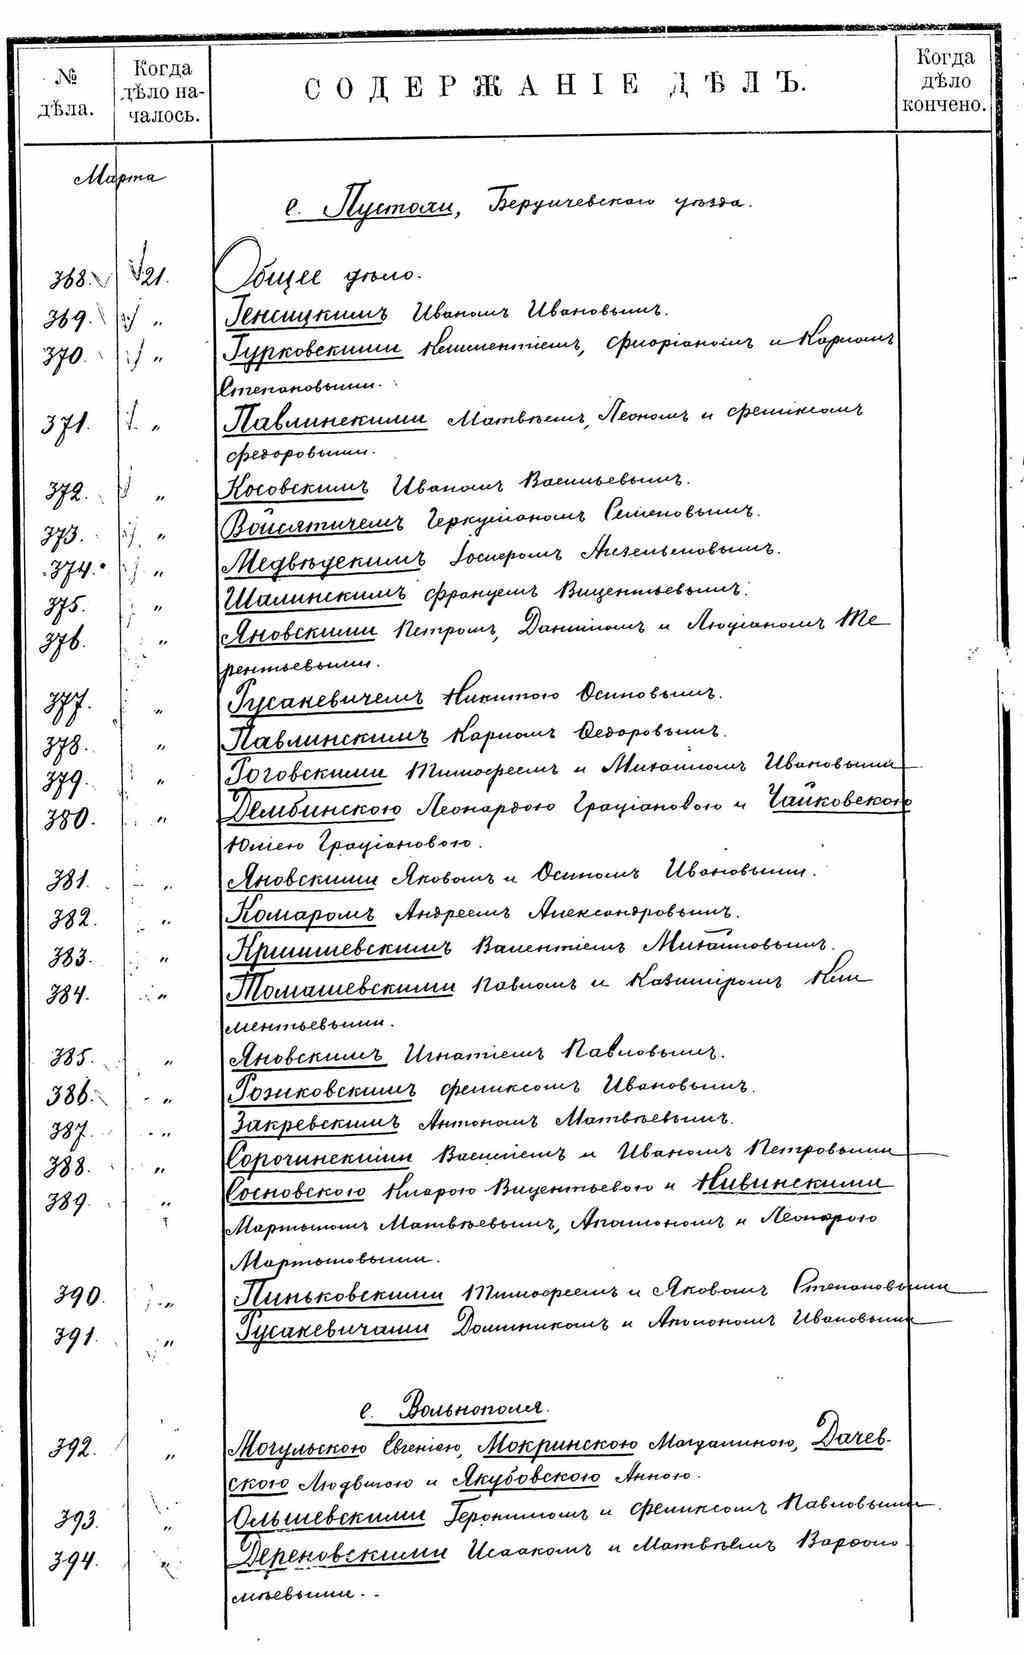 № дѣла.
Когда дѣло началось.
СОДЕРЖАНІЕ ДѢЛЪ.
Когда дѣло кончено.
Марта
с. Пустохи, Бердичевскаго уѣзда.
368. 21. Общее дѣло.
369. " Генсицкимъ Иваномъ Ивановымъ.
370. " Гурковскими Клементіемъ, Флоріаномъ и Карломъ
Степановыми.
371. " Павлинскими Матвѣемъ, Леономъ и Феликсомъ
Федоровыми.
372. " Косовскимъ Иваномъ Васильевымъ.
373. " Войсятичемъ Геркуланомъ Семеновымъ.
374. " Медвѣдскимъ Госперомъ Ансельмовымъ.
375. " Шалинскимъ Францемъ Вицентьевымъ.
376. " Яновскими Петромъ, Даниломъ и Люціаномъ Те
рентьевыми.
377. " Русакевичемъ Никитою Осиповымъ.
378. " Павлинскимъ Карломъ Федоровымъ.
379. " Роговскими Тимофеемъ и Михаиломъ Ивановыми
380. " Дембинскою Леонардою Граціановою и Чайковскою
Юліею Граціановою.
381. " Яновскими Яковомъ и Осипомъ Ивановыми.
382. " Комаромъ Андреемъ Александровымъ.
383. " Кришшевскимъ Валентіемъ Михайловымъ.
384. " Томашевскими Павломъ и Казиміромъ Кли
ментьевыми.
385. " Яновскимъ Игнатіемъ Павловымъ.
386. " Рознковскимъ Феликсомъ Ивановымъ.
387. " Закревскимъ Антономъ Матвѣевымъ.
388. " Сорочинскими Василіемъ и Иваномъ Петровыми
389. " Сосновскою Кларою Вицентьевою и Нивинскими
Мартыномъ Матвѣевымъ, Аполономъ и Леонорою
Мартыновыми.
390. " Пиньковскими Тимофеемъ и Яковомъ Степановыми
391. " Русакевичами Доминикомъ и Аполономъ Ивановыми
с. Вольнополя.
392. " Могульскою Евгеніею, Мокринскою Магдалиною, Дачев-
скою Людвигою и Якубовскою Анною.
393. " Ольшевскими Геронимомъ и Феликсомъ Павловыми.
394. " Дереновскими Исаакомъ и Матвѣемъ Варфоло-
мѣевыми.